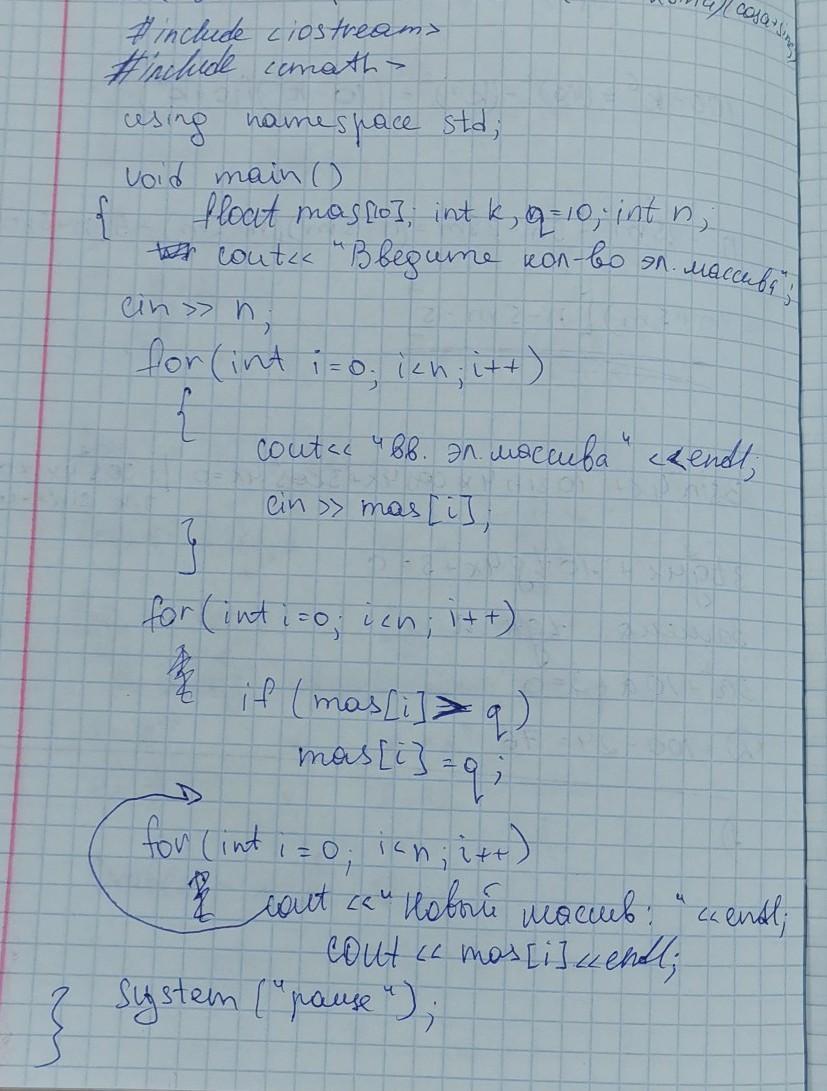 (cosa+sina)
#include <iostream>
#include <cmath>
using namespace std;
void main()
{ float mas[10]; int k, q=10; int n;
cout<< "Введите кол-во эл. массива";
cin >> n;
for(int i=0; i<n; i++)
{
cout<< "вв. эл. массива" <<endl;
cin >> mas[i];
}
for(int i=0; i<n; i++)
if (mas[i] > q)
mas[i] = q;
for(int i=0; i<n; i++)
cout <<"Новый массив: "<<endl;
cout << mas[i]<<endl;
system ("pause");
}